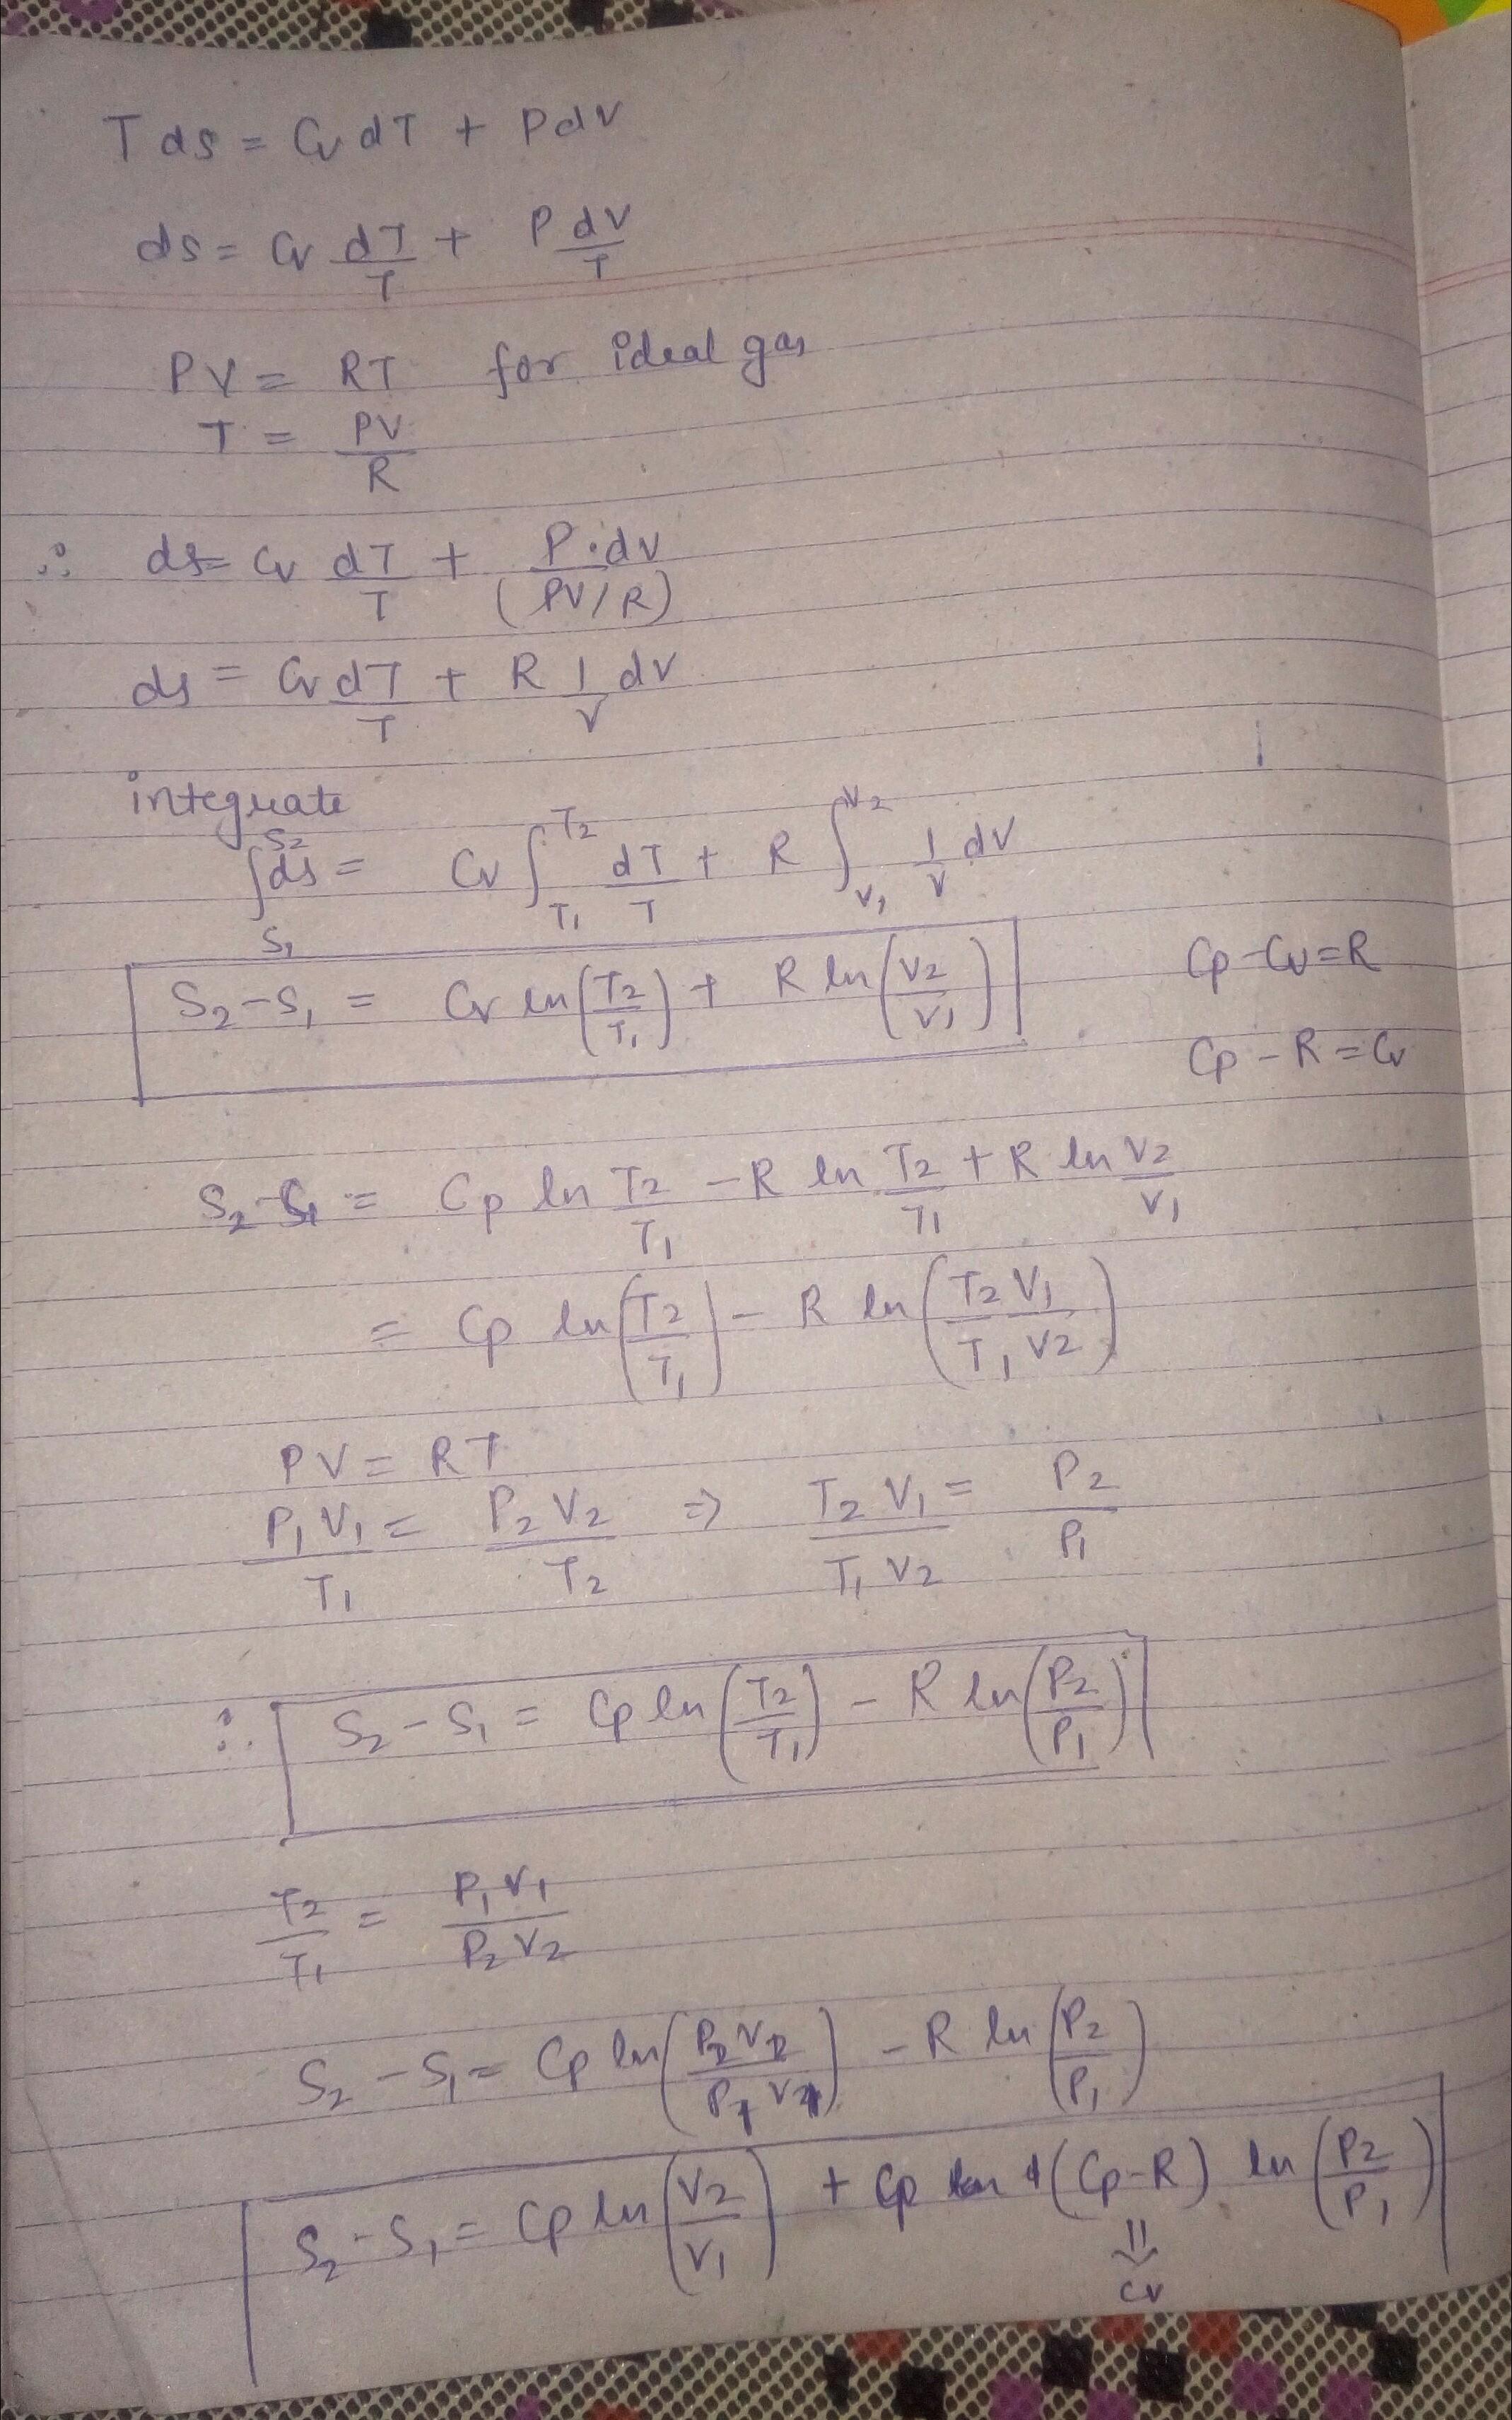 T ds = Cv dT + Pdv
ds = Cv dT/T + P dv/T
PV = RT for ideal gas
T = PV/R
∴ ds = Cv dT/T + P.dv/(PV/R)
ds = Cv dT/T + R 1/V dv
integrate
∫_{S1}^{S2} ds = Cv ∫_{T1}^{T2} dT/T + R ∫_{V1}^{V2} 1/V dv
S2 - S1 = Cv ln(T2/T1) + R ln(V2/V1)
Cp - Cv = R
Cp - R = Cv
S2 - S1 = Cp ln T2/T1 - R ln T2/T1 + R ln V2/V1
= Cp ln(T2/T1) - R ln(T2 V1/T1 V2)
PV = RT
P1 V1/T1 = P2 V2/T2 => T2 V1/T1 V2 = P2/P1
∴ S2 - S1 = Cp ln(T2/T1) - R ln(P2/P1)
T2/T1 = P1 V1/P2 V2
S2 - S1 = Cp ln(P2 V2/P1 V1) - R ln(P2/P1)
S2 - S1 = Cp ln(V2/V1) + (Cp - R) ln(P2/P1)
⇓
Cv